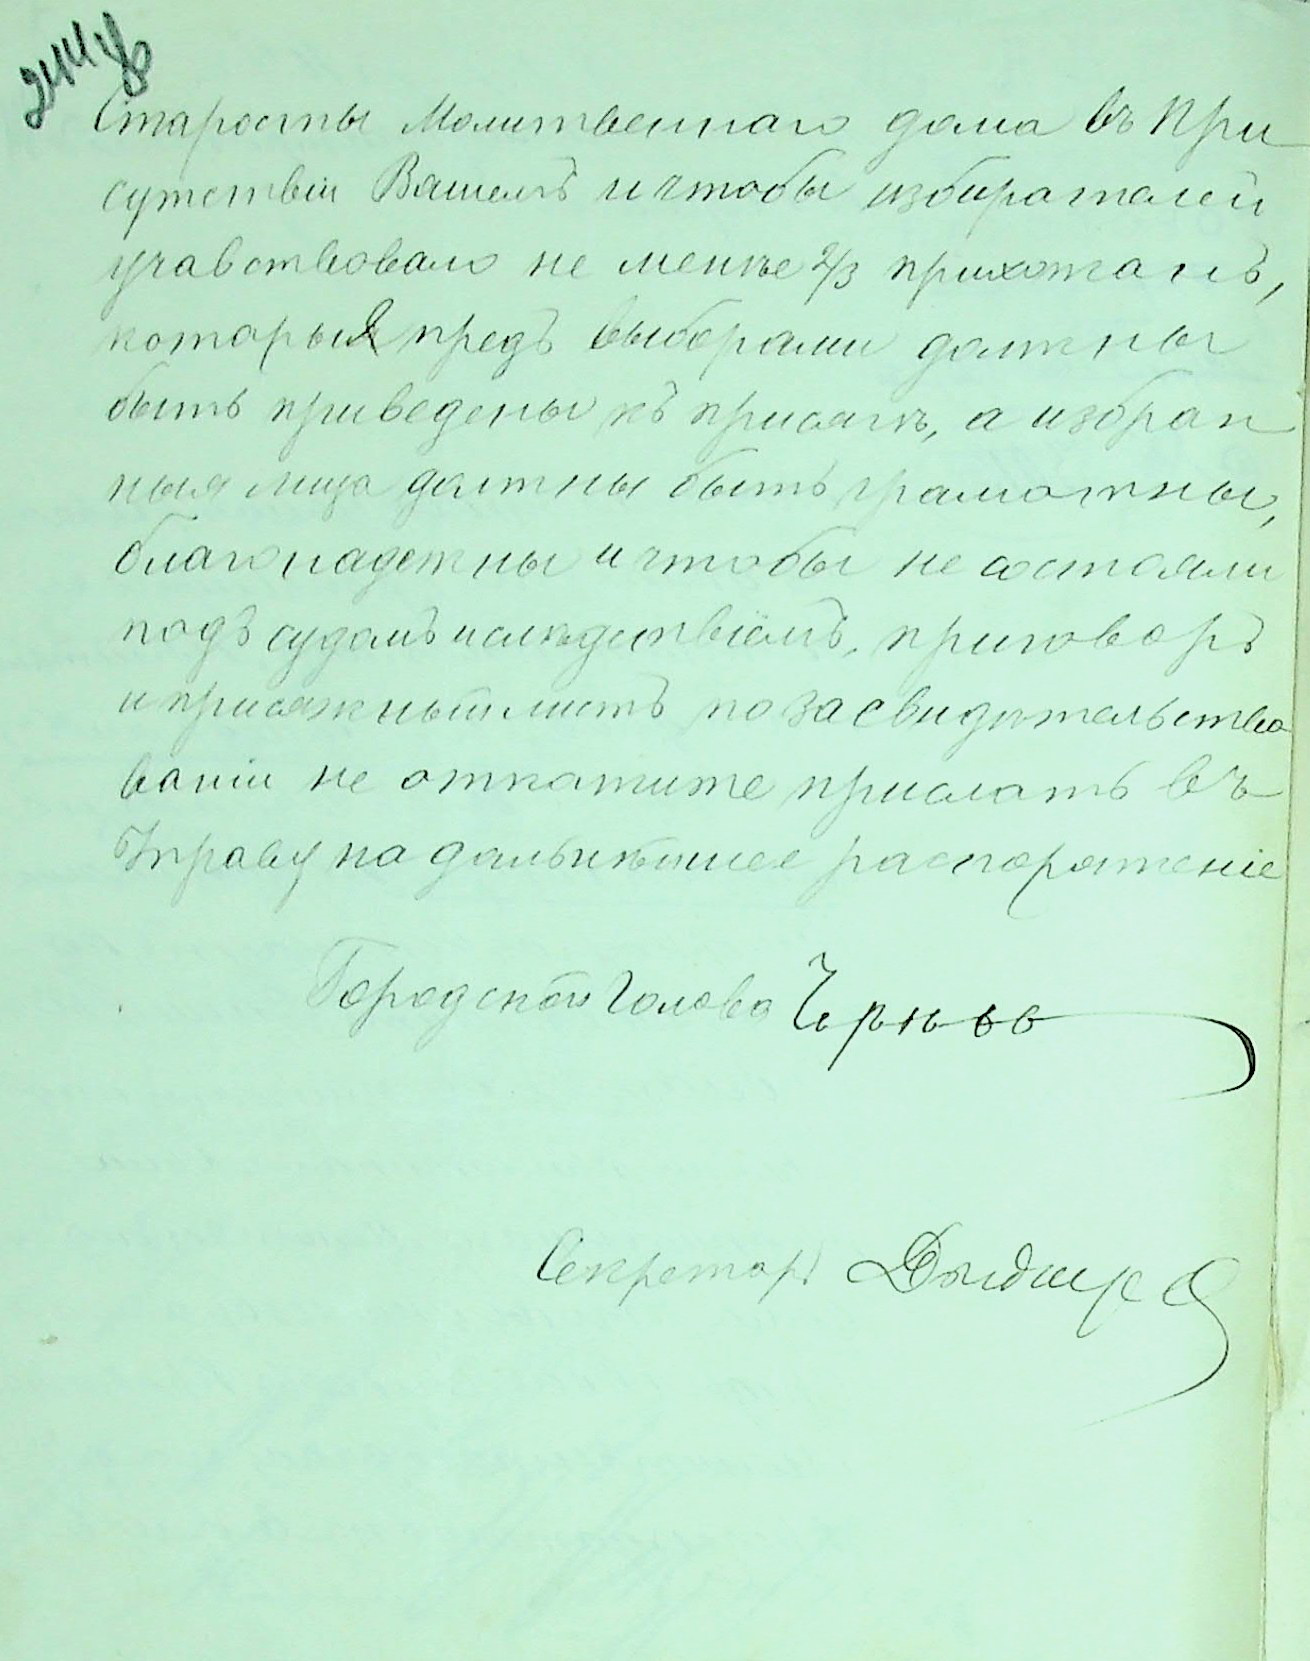 Старосты Молитвеннаго дома въ При
сутствіи Вашемъ и чтобы избирателей
учавствовало не менѣе 2/3 прихожанъ,
которыя предъ выборами должны
быть приведены къ присягѣ, а избран
ныя лица должны быть грамотны,
благонадежны и чтобы не состояли
подъ судомъ и слѣдствіемъ, приговоръ
и присяжный листъ по засвидѣтельство
ваніи не откажите прислать въ
Управу на дальнѣйшее распоряженіе
Городской Голова
Секретарь